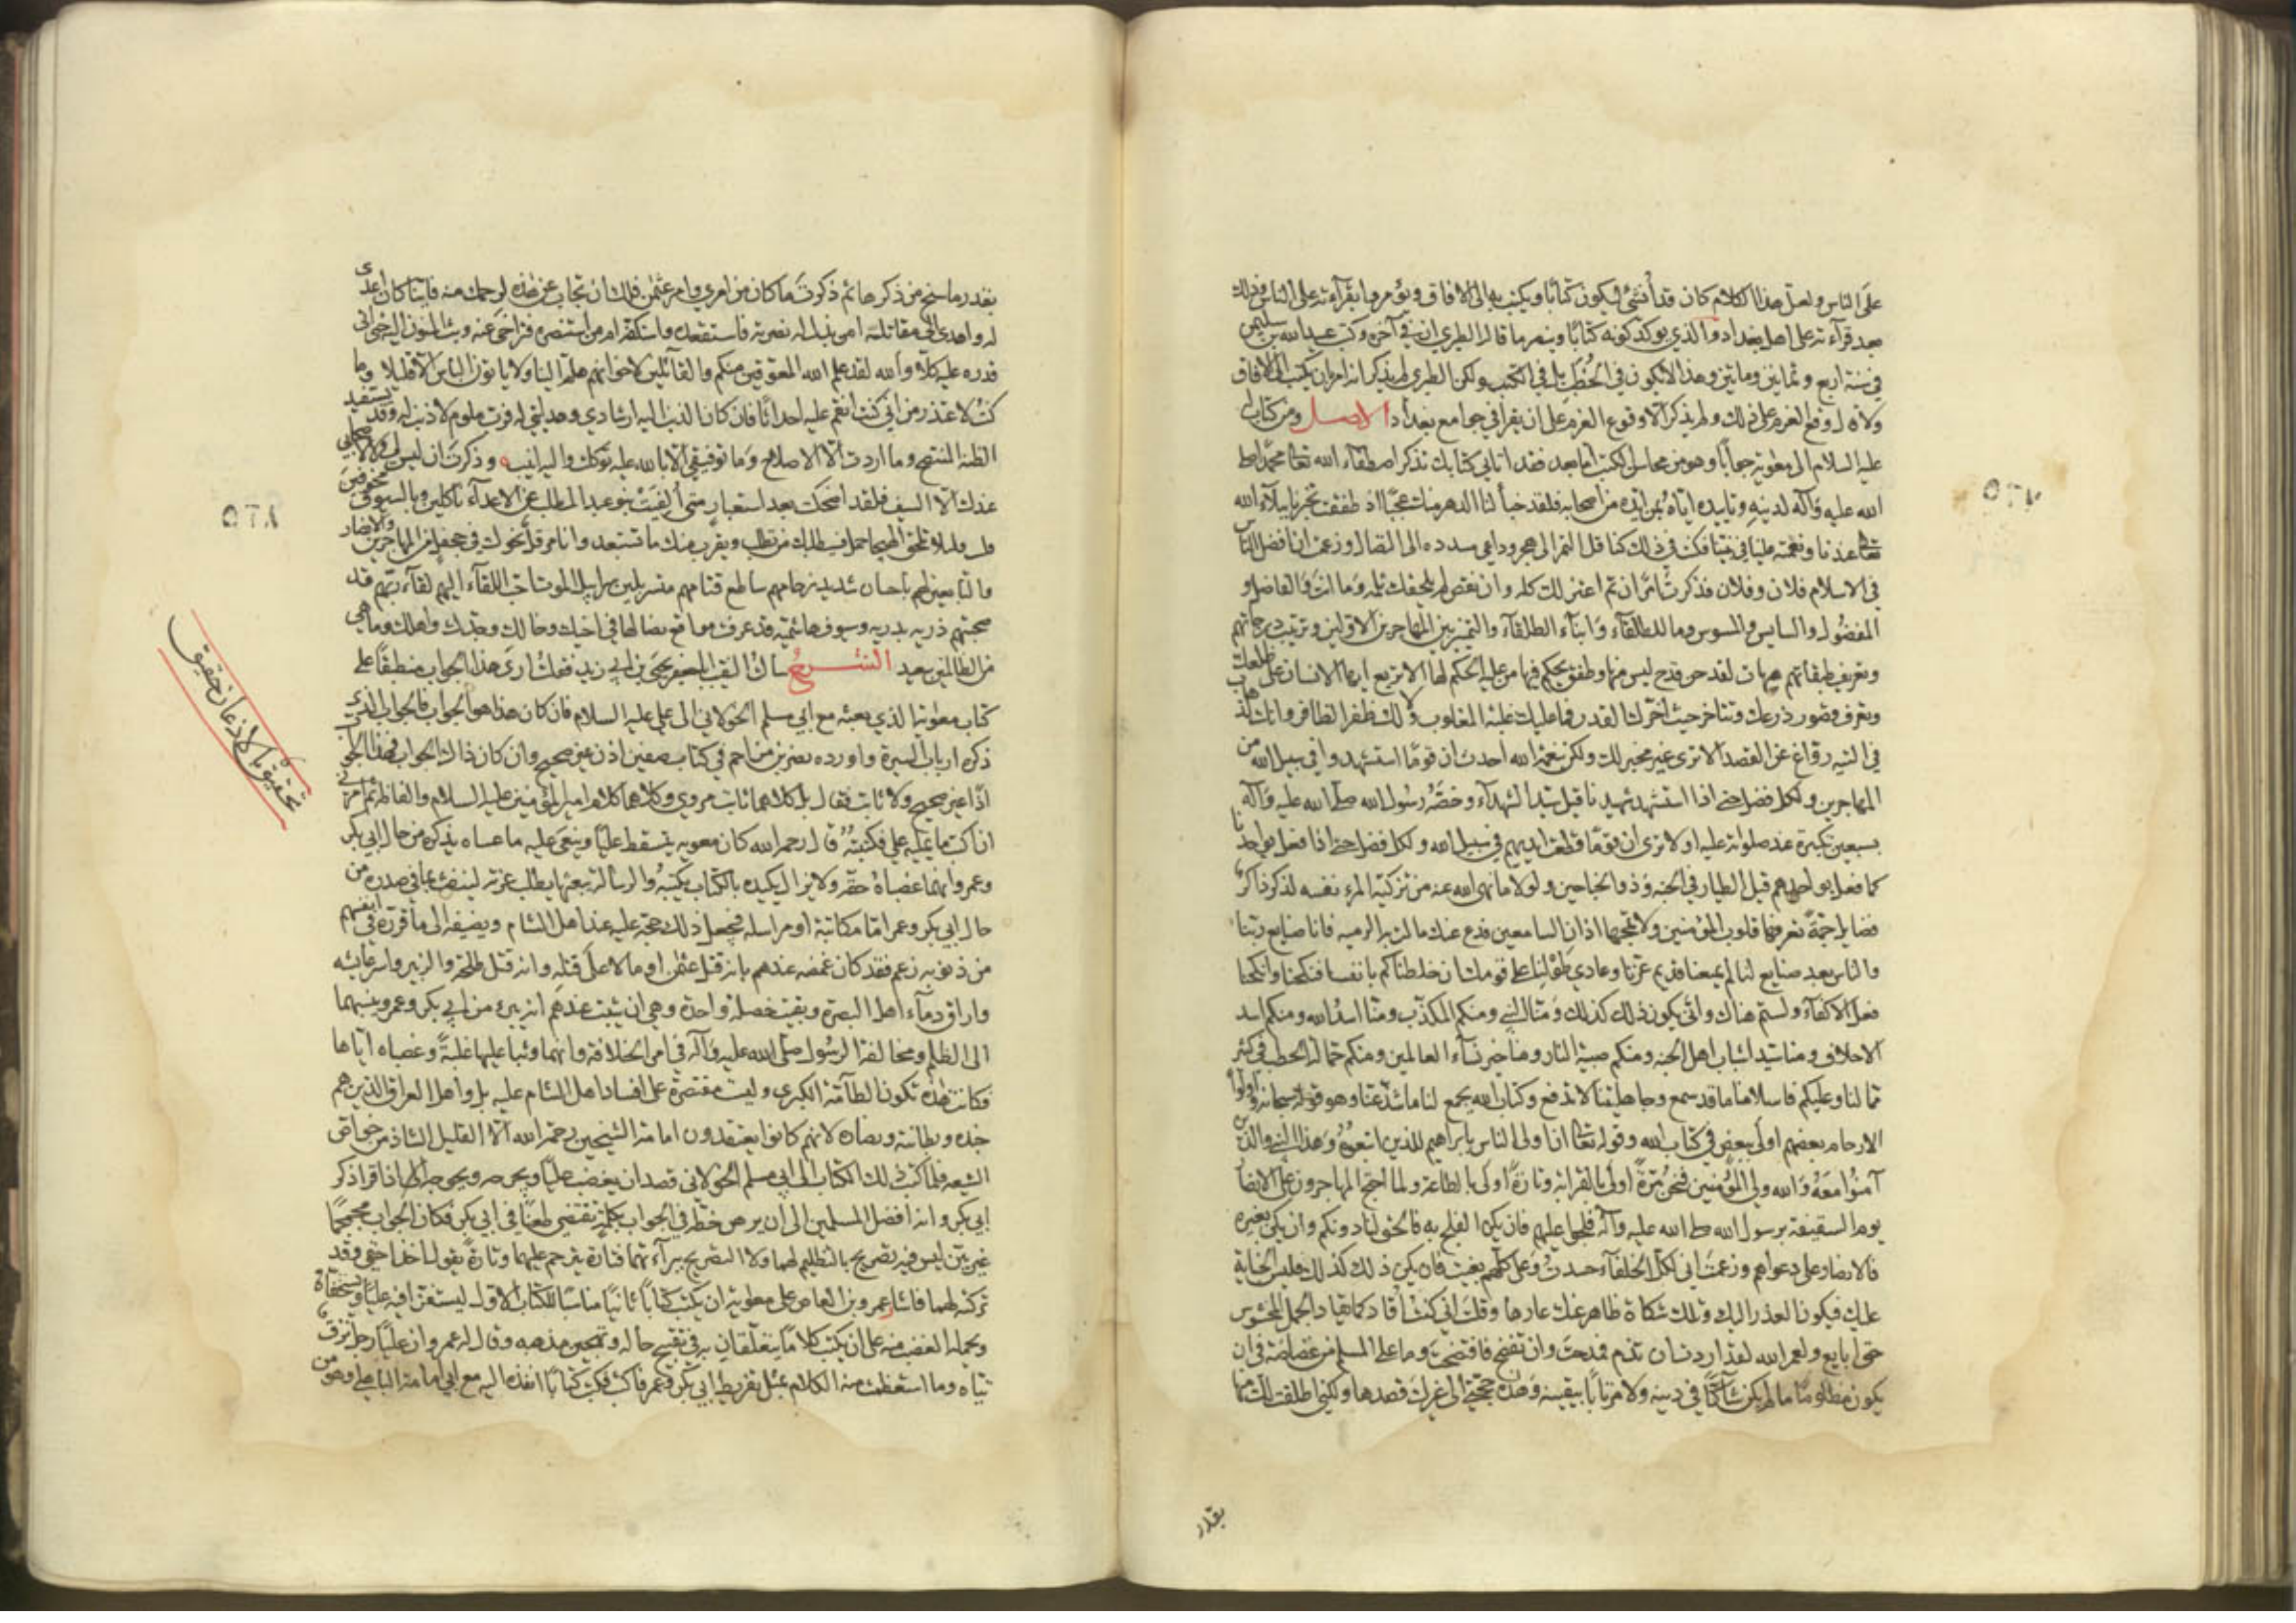 على الناس ولعل هذا الكلام كان قد أنشئ ليكون كتابا ويكتب به الى الافاق ويؤمروا بقرآءته على الناس وذلك
بعد قرآءته على اهل بغداد والذي يوكد كونه كتابا وينصر ما قاله الطبري ان في آخره وكتب عبيد الله بن سليمن
في سنة اربع وثمانين ومائتين وهذا لا يكون في الخُطَب بل في الكتب ولكن الطبري لم يذكر انه امر بان يكتب الى الافاق
ولا قال وقع العزم على ذلك ولم يذكر الا وقوع العزم على ان يقرا في جوامع بغداد الاصل ومن كتاب له
عليه السلام الى معوية جوابا وهو من محاسن الكتب اما بعد فقد اتاني كتابك تذكر اصطفآء الله تعا محمدا صلى
الله عليه وآله لدينه وتاييده اياه بمن ايّده من اصحابه فلقد خبأ لنا الدهر منك عجبًا اذ طفقت تخبرنا ببلآء الله
تعا عندنا ونعمته علينا في نبينا فكنت في ذلك كناقل التمر الى هجر وداعي مسدده الى النضال وزعمت ان افضل الناس
في الاسلام فلان وفلان فذكرت امرًا ان تم اعتزلك كله وان نقص لم يلحقك ثلمه وما انت والفاضل و
المفضول والسايس والمسوس وما للطلقآء وابنآء الطلقآء والتمييز بين المهاجرين الاولين وترتيب درجاتهم
وتعريف طبقاتهم هيهات لقد حن قدح ليس منها وطفق يحكم فيها من عليه الحكم لها الا تربع ايها الانسان على ظلعك
وتعرف قصور ذرعك وتتاخر حيث اخّرك القدر فما عليك غلبة المغلوب ولا لك ظفر الظافر وانك لذهاب
في التيه رواغ عن القصد الا ترى غير مخبر لك ولكن بنعمة الله احدث ان قومًا استشهدوا في سبيل الله من
المهاجرين ولكل فضل حتى اذا استشهد شهيدنا قيل سيد الشهدآء وخصّه رسول الله صلى الله عليه وآله
بسبعين تكبيرة عند صلوته عليه او لا ترى ان قومًا قطعت ايديهم في سبيل الله ولكل فضل حتى اذا فعل بواحدنا
كما فعل بواحدهم قيل الطيار في الجنة وذو الجناحين ولولا ما نهى الله عنه من تزكية المرء نفسه لذكر ذاكر
فضايل جمّة تعرفها قلوب المؤمنين ولا تمجها اذان السامعين فدع عنك من مالت به الرمية فانا صنايع ربنا
والناس بعد صنايع لنا لم يمنعنا قديم عزنا وعادي طولنا على قومك ان خلطناكم بانفسنا فنكحنا وانكحنا
فعل الاكفآء ولستم هناك وانّى يكون ذلك كذلك ومنا النبي ومنكم المكذّب ومنا اسد الله ومنكم اسد
الاحلاف ومنا سيدا شباب اهل الجنة ومنكم صبية النار ومنا خير نسآء العالمين ومنكم حمالة الحطب في كثير
مما لنا وعليكم فاسلامنا ما قد سمع وجاهليتنا لا تدفع وكتاب الله يجمع لنا ما شذ عنا وهو قوله سبحانه واولوا
الارحام بعضهم اولى ببعض في كتاب الله وقوله تعا ان اولى الناس بابراهيم للذين اتبعوه وهذا النبي والذين
آمنوا معه والله ولي المؤمنين فنحن مرّة اولى بالقرابة وتارة اولى بالطاعة ولما احتج المهاجرون على الانصار
يوم السقيفة برسول الله صلى الله عليه وآله فلجوا عليهم فان يكن الفلج به فالحق لنا دونكم وان يكن بغيره
فالانصار على دعواهم وزعمت اني لكل الخلفآء حسدت وعلى كلهم بغيت فان يكن ذلك كذلك فليس الجناية
عليك فيكون العذر اليك وتلك شكاة ظاهر عنك عارها وقلت اني كنت أقاد كما يقاد الجمل المخشوش
حتى ابايع ولعمر الله لقد اردت ان تذم فمدحت وان تفضح فافتضحت وما على المسلم من غضاضة في ان
يكون مظلوما ما لم يكن شاكّا في دينه ولا مرتابا بيقينه وهذه حجتي الى غيرك قصدها ولكني اطلقت لك منها
بقدر
بقدر ما سنح من ذكرها ثم ذكرت ما كان من امري وامر عثمن فلك ان تجاب عن هذه لرحمك منه فاينا كان اعدى
له واهدى الى مقاتله امن بذل له نصرته فاستقعده واستكفه ام من استنصره فتراخى عنه وبث المنون اليه حتى اتى
قدره عليه كلا والله لقد علم الله المعوقين منكم والقآئلين لاخوانهم هلم الينا ولا ياتون الباس الا قليلا وما
كنت لاعتذر من اني كنت انقم عليه احداثا فان كان الذنب اليه ارشادي وهدايتي له فرب ملوم لا ذنب له وقد يستفيد
الظنة المتنصح وما اردت الا الاصلاح وما توفيقي الا بالله عليه توكلت واليه انيب وذكرت ان ليس لي ولاصحابي
عندك الا السيف فلقد اضحكت بعد استعبار متى ألفيت بنو عبد المطلب عن الاعدآء ناكلين وبالسيوف مخوفين
فلبث قليلا تلحق الهيجا حمل فسيطلبك من تطلب ويقرب منك ما تستبعد وانا مرقل نحوك في جحفل من المهاجرين والانصار
والتابعين لهم باحسان شديد زحامهم ساطع قتامهم متسربلين سرابيل الموت احب اللقآء اليهم لقآء ربهم قد
صحبتهم ذرية بدرية وسيوف هاشمية قد عرفت مواقع نصالها في اخيك وخالك وجدك واهلك وما هي
من الظالمين ببعيد الشرح سالت النقيب ابا جعفر يحيى بن ابي زيد فقلت ارى هذا الجواب منطبقا على
كتاب معوية الذي بعثه مع ابي مسلم الخولاني الى علي عليه السلام فان كان هذا هو الجواب فالجواب الذي
ذكره ارباب السيرة واورده نصر بن مزاحم في كتاب صفين اذن غير صحيح وان كان ذاك الجواب فهذا الجواب
اذًا غير صحيح ولا ثابت فقال بل كلاهما ثابت مروي وكلاهما كلام امير المؤمنين عليه السلام والفاظه ثم امرني
ان اكتب ما يمليه علي فكتبته قال رحمه الله كان معوية يتسقط عليّا وينعى عليه ما عساه يذكره من حال ابي بكر
وعمر وانهما غصباه حقه ولا يزال يكيده بالكتاب يكتبه والرسالة يبعثها يطلب غرته لينفث بما في صدره من
حال ابي بكر وعمر اما مكاتبة او مراسلة فيجعل ذلك حجة عليه عند اهل الشام ويضيفه الى ما قرره في انفسهم
من ذنوبه زعم فقد كان غمصه عندهم بانه قتل عثمن او مالا على قتله وانه قتل طلحة والزبير واسر عايشه
واراق دمآء اهل البصرة وبقيت خصلة واحدة وهي ان يثبت عندهم انه يبرء من ابي بكر وعمر وينسبهما
الى الظلم ومخالفة الرسول صلى الله عليه وآله في امر الخلافة وانهما وثبا عليها غلبةً وغصباه اياها
فكانت هذه تكون الطآمة الكبرى وليست مقتصرة على افساد اهل الشام عليه بل واهل العراق الذين هم
جنده وبطانته وبنصاره لانهم كانوا يعتقدون امامة الشيخين رحمة الله الا القليل الشاذ من خواص
الشيعه فلما كتب ذلك الكتاب الى ابي مسلم الخولاني قصد ان يغضب عليّا ويحرجه ويحوجه اذا قرا ذكر
ابي بكر وانه افضل المسلمين الى ان يرهن خطه في الجواب بكلمة تقتضي طعنًا في ابي بكر فكان الجواب مجمجمًا
غير بين ليس فيه تصريح بالتظليم لهما ولا التصريح ببرآءتهما فتارة يترحم عليهما وتارةً يقول اخذا حقي وقد
تركته لهما فاشار عمرو بن العاص على معوية ان يكتب كتابًا ثانيًا مناسبًا للكتاب الاول ليستفزا فيه عليّا ويستخفاه
ويحمله الغضب منه على ان يكتب كلامًا يتعلقان به في تقبيح حاله وتهجين مذهبه وقال له عمرو ان عليّا رجل نزق
تياه وما استطعمت منه الكلام بمثل تقريظ ابي بكر وعمر فاكتب فكتب كتابا انفذه اليه مع ابي امامة الباهلي وهو من
تحقيق بالاذعان حقيق